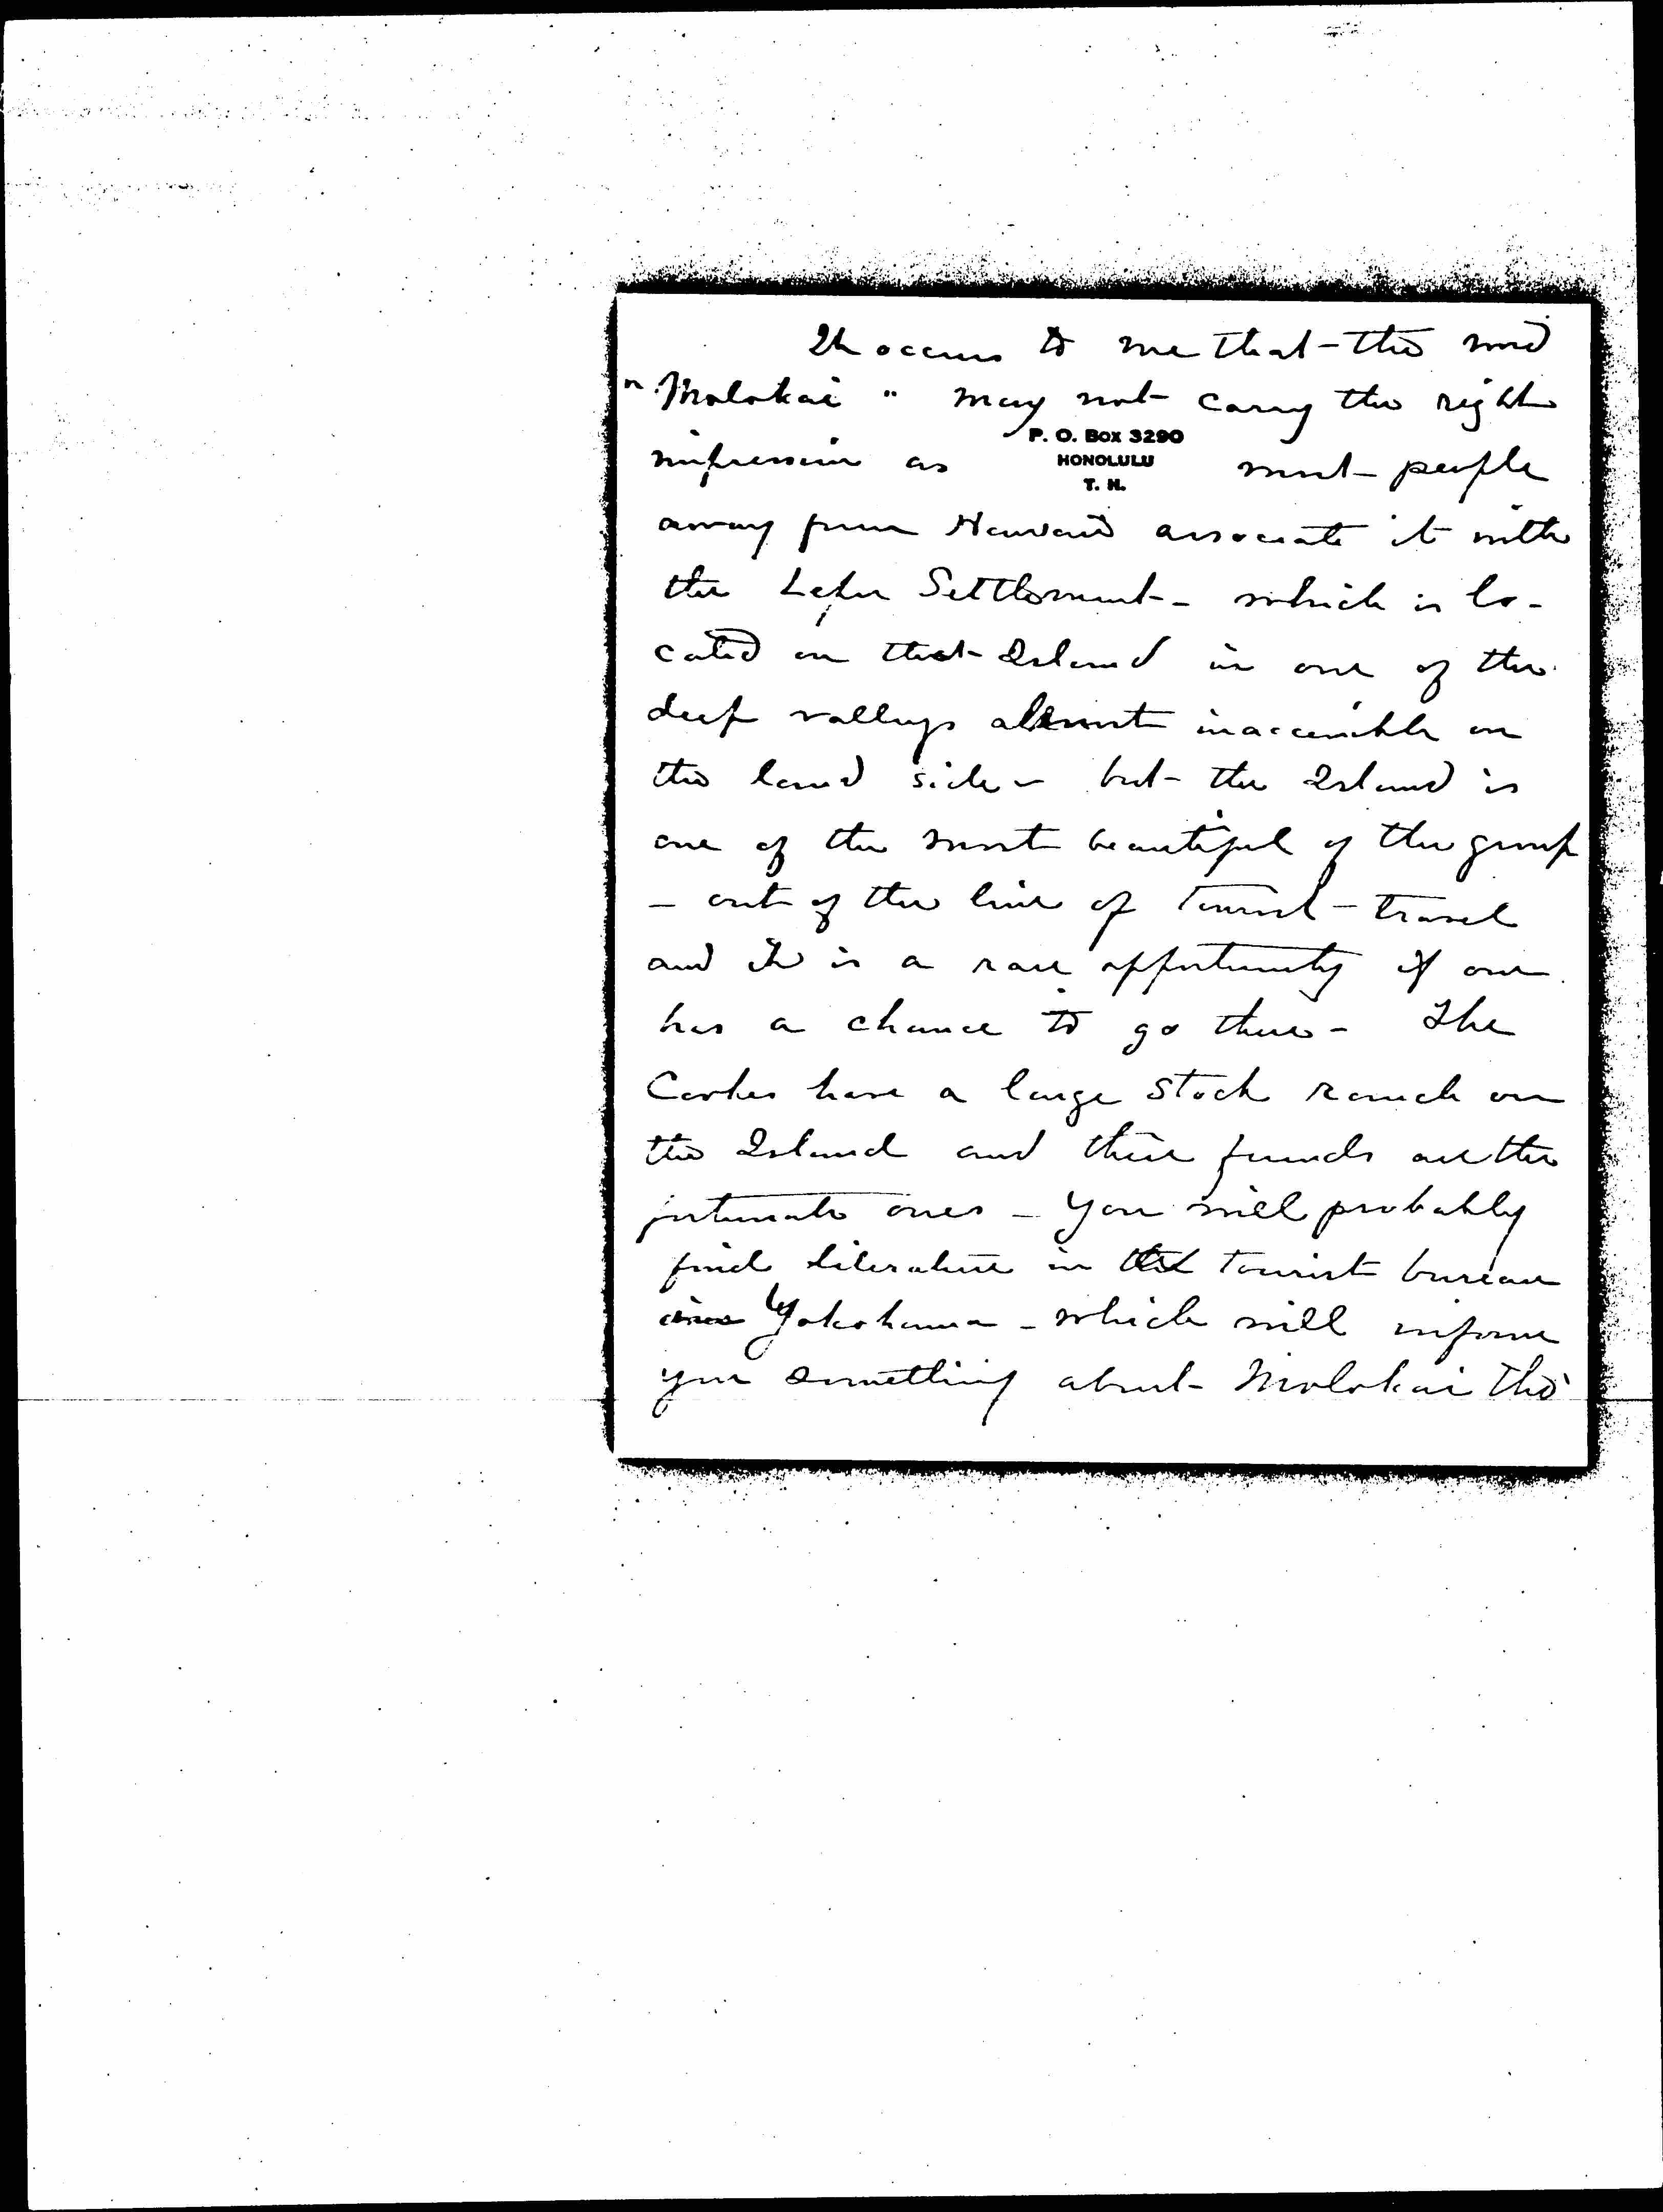 It occurs to me that the word
"Molokai" may not carry the right
P. O. Box 3290
HONOLULU
T. H.
impression as most people
away from Hawaii associate it with
the Leper Settlement - which is lo-
cated on that Island in one of the
deep valleys almost inaccessible on
the land side - but the Island is
one of the most beautiful of the group
- out of the line of tourist travel
and it is a rare opportunity if one
has a chance to go there - The
Cookes have a large stock ranch on
the Island and their friends are the
fortunate ones - You will probably
find literature in the tourist bureau
in Yokohama - which will inform
you something about Molokai tho'